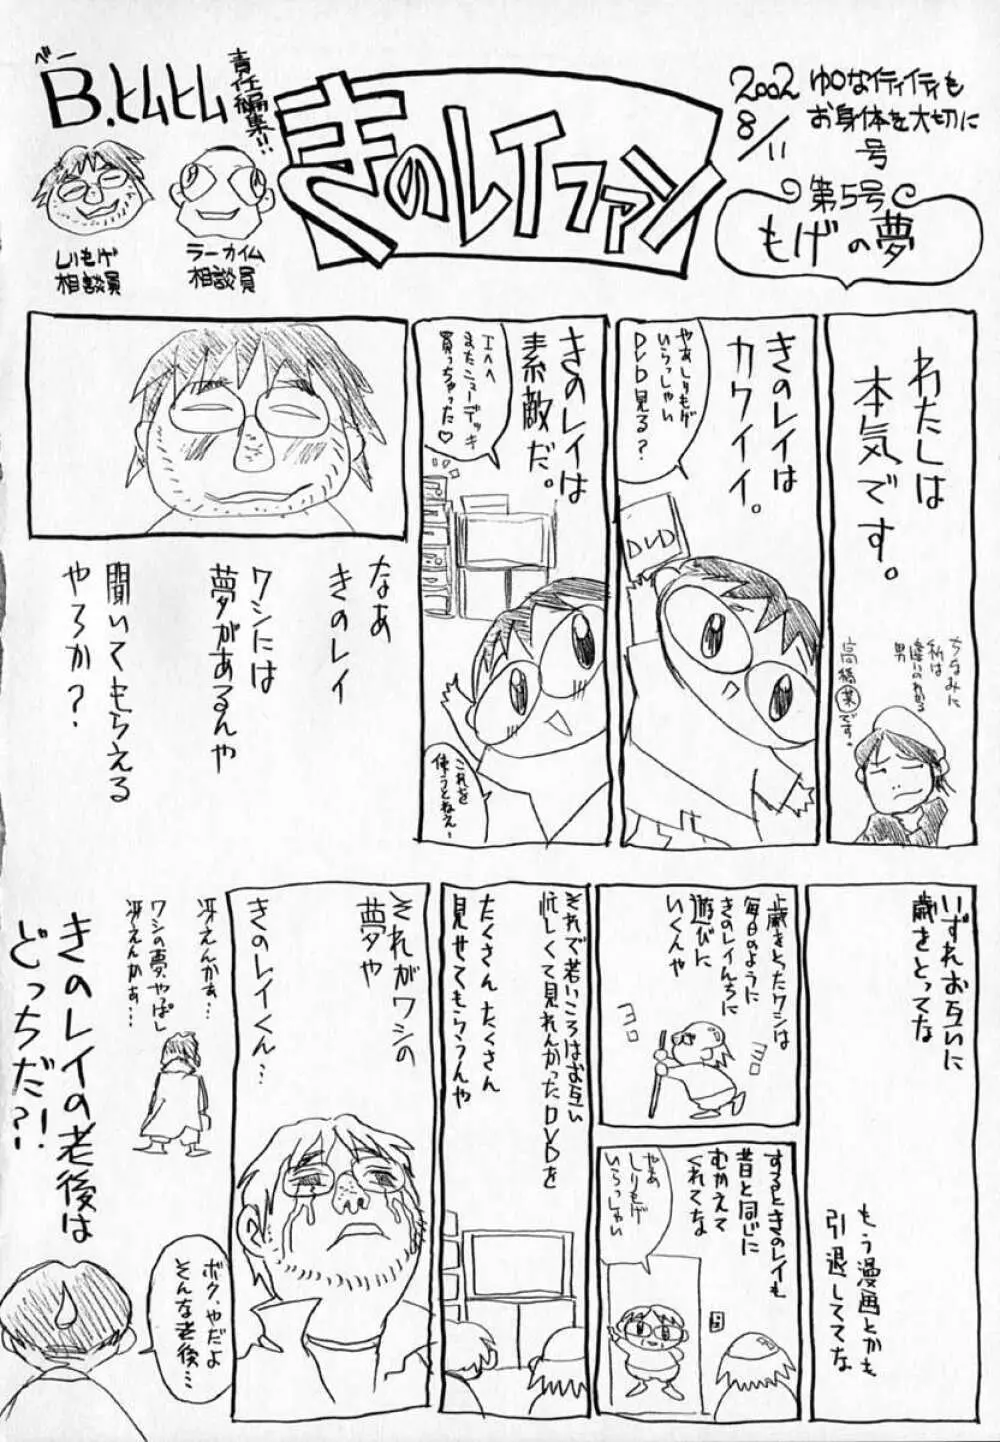 2002
8/11
ゆ○なイティイティも
お身体を大切に
号
第5号
もげの夢
きのレイファン
責任編集!!
べー
B.ヒムヒム
しりもげ
相談員
ラーカイム
相談員
わたしは
本気です。
ちなみに
私は
違いのわかる
男
高橋葉です。
きのレイは
カワイイ。
やあしりもげ
いらっしゃい
DVD見る?
DVD
きのレイは
素敵だ。
エヘヘ
またニューデッキ
買っちゃった♡
これを
使うとねえ、
なあ
きのレイ
ワシには
夢があるんや
聞いてもらえる
やろか?
いずれお互いに
歳をとってな
もう漫画とかも
引退しててな
歳をとったワシは
毎日のように
きのレイんちに
遊びに
いくんや
ヨロ
ヨロ
するときのレイも
昔と同じに
むかえて
くれてな
やあ
しりもげ
いらっしゃい
それで若いころはお互い
忙しくて見れんかったDVDを
たくさんたくさん
見せてもらうんや
それがワシの
夢や
きのレイくん…
冴えんかぁ…
ワシの夢、やっぱし
冴えんかぁ…
ボク、やだよ
そんな老後…
きのレイの老後は
どっちだ?!